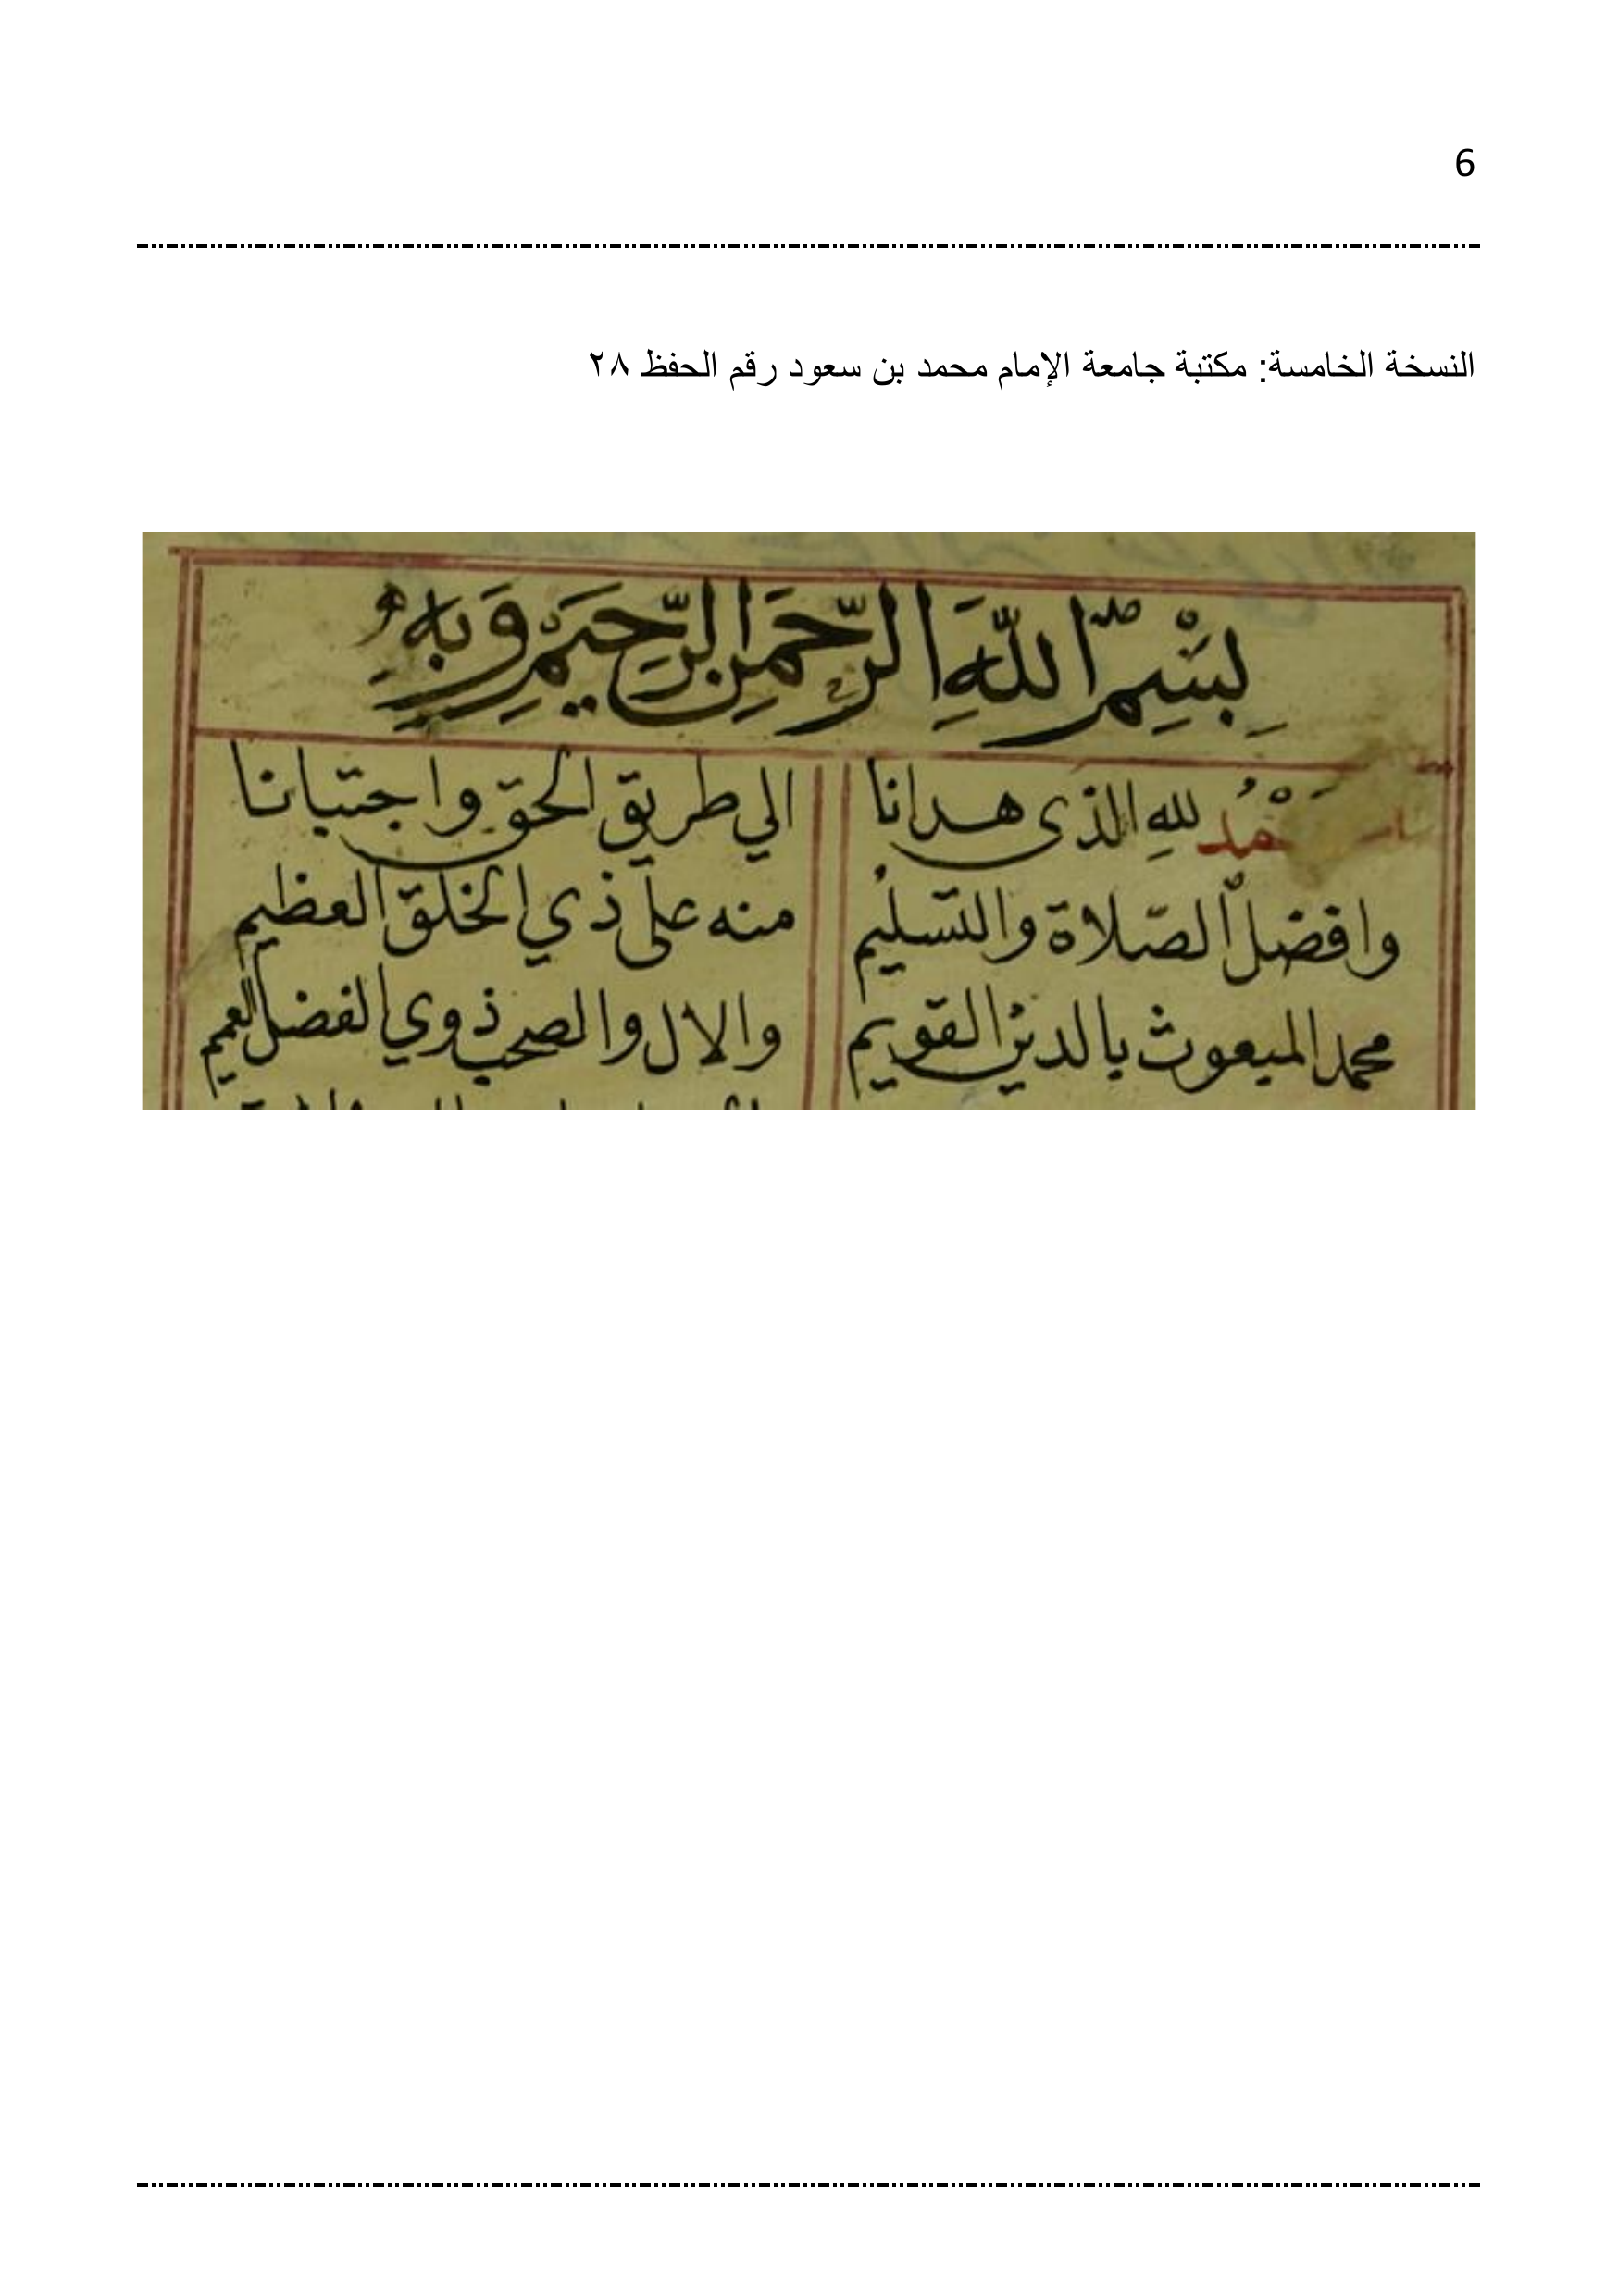 6
النسخة الخامسة: مكتبة جامعة الإمام محمد بن سعود رقم الحفظ ٢٨
بِسْمِ اللّٰهِ الرَّحْمٰنِ الرَّحِيَمِ وَبِهِ
لله الذى هدانا الي طريق الحقّ واجتبانا
وافضل الصّلاة والتسليم منه على ذي الخلق العظيم
محمد المبعوث بالدين القويم والال والصحب ذوي الفضل العميم